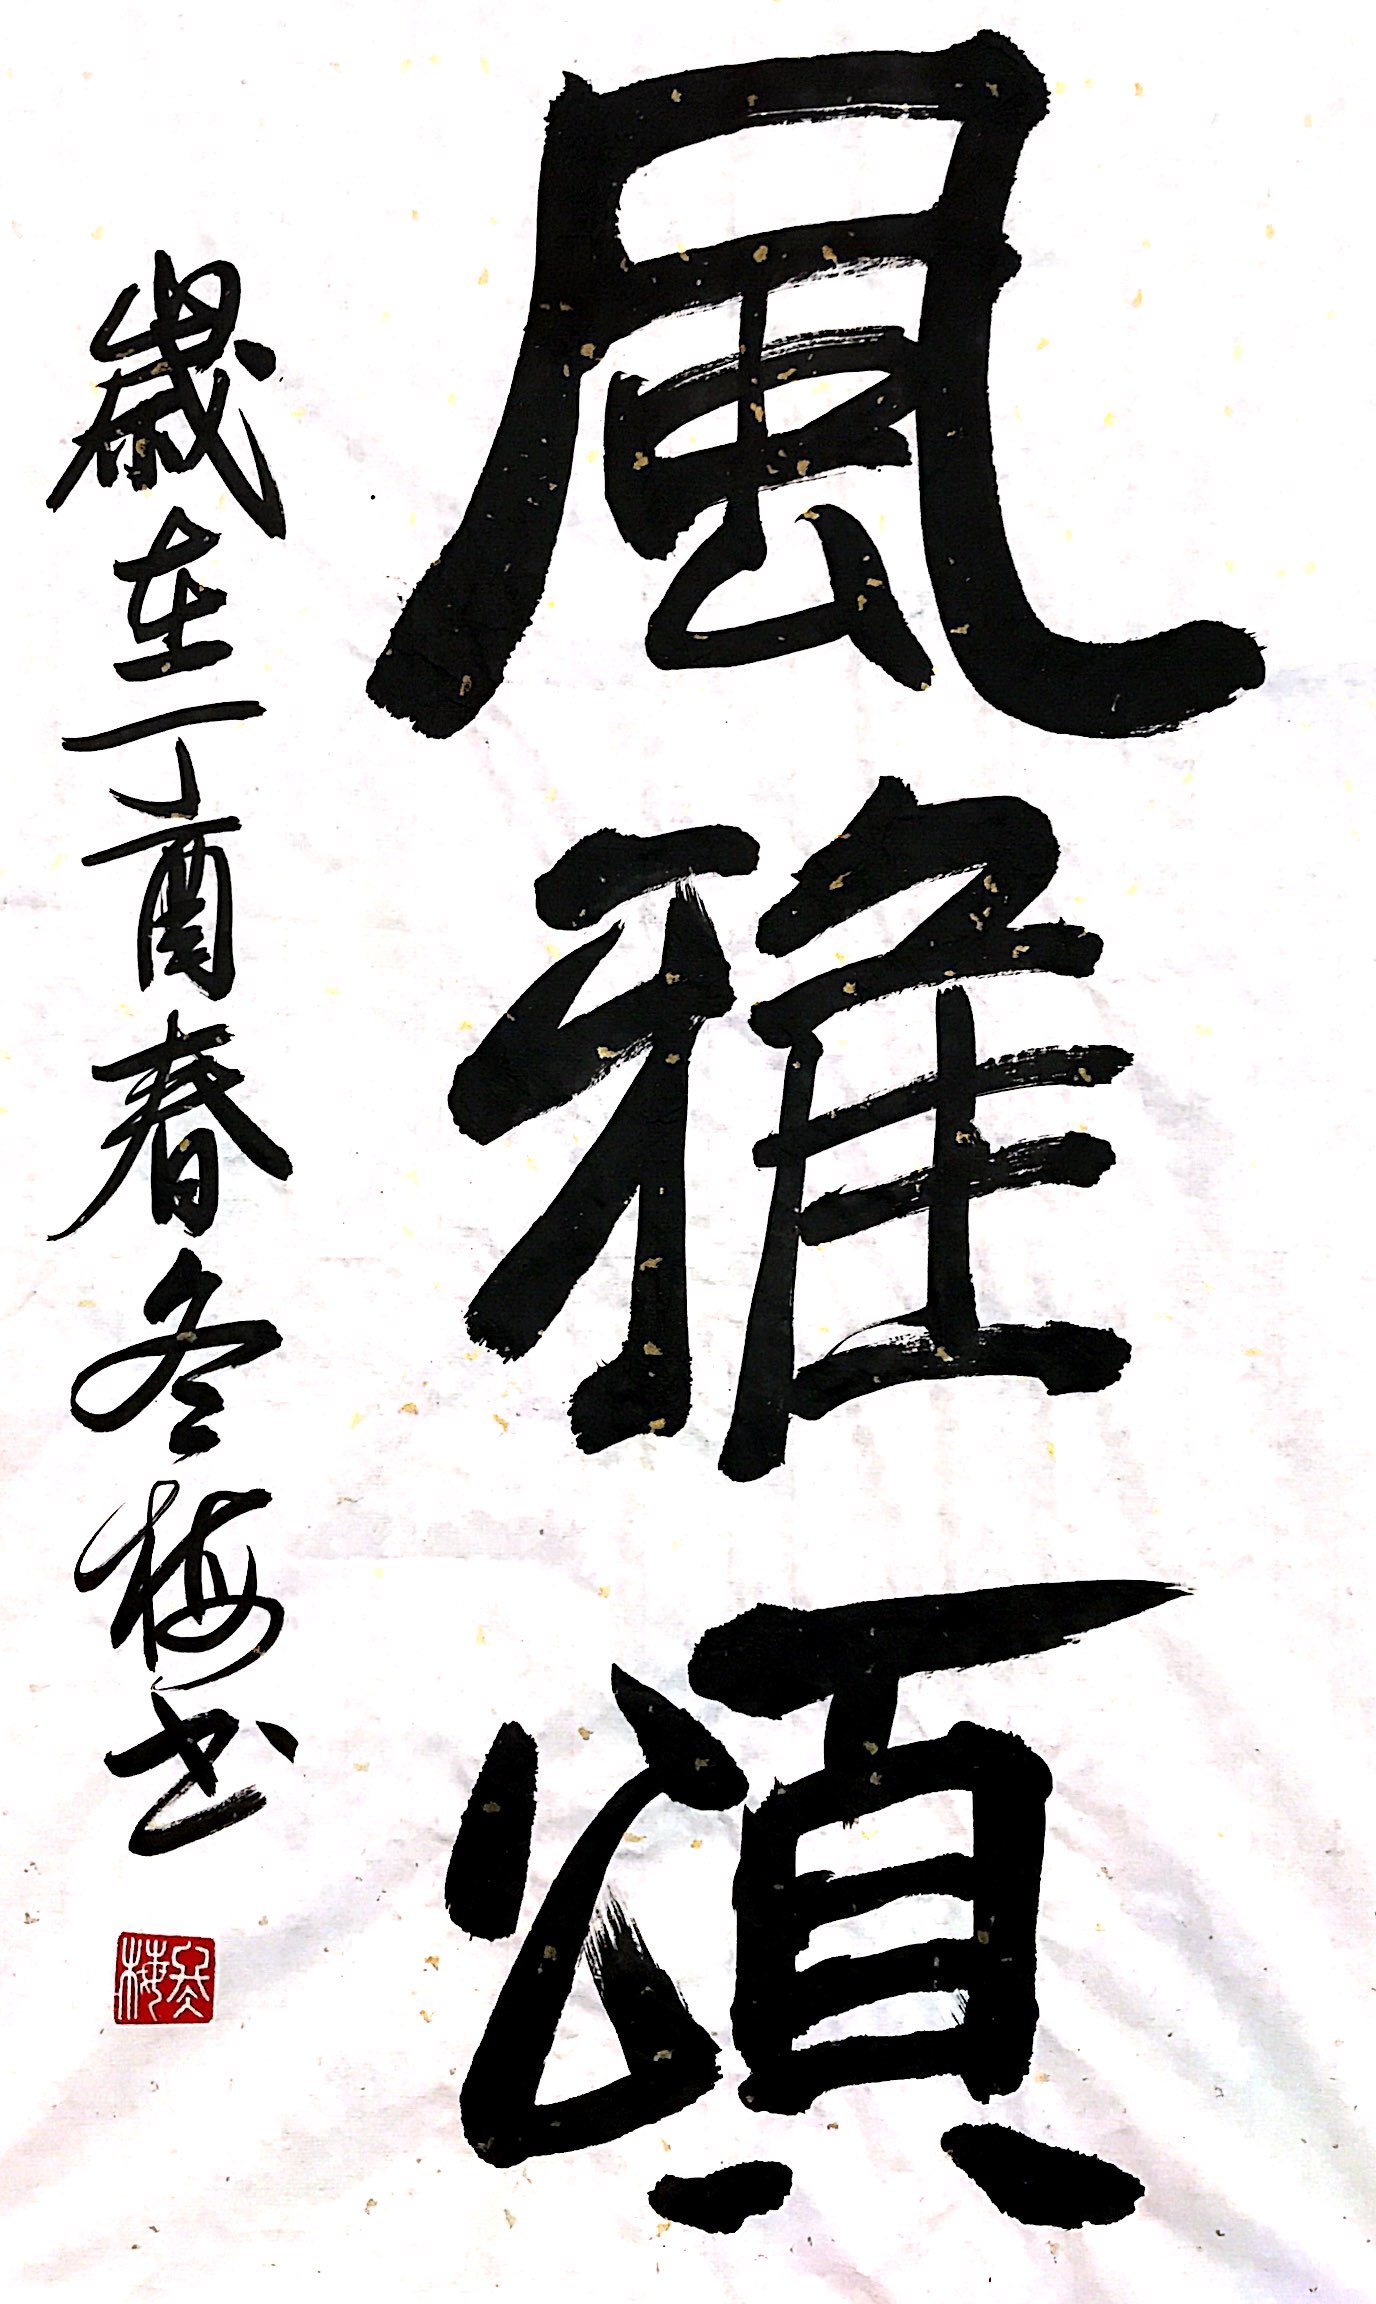 風雅頌
歲在丁酉春冬梅书
冬梅